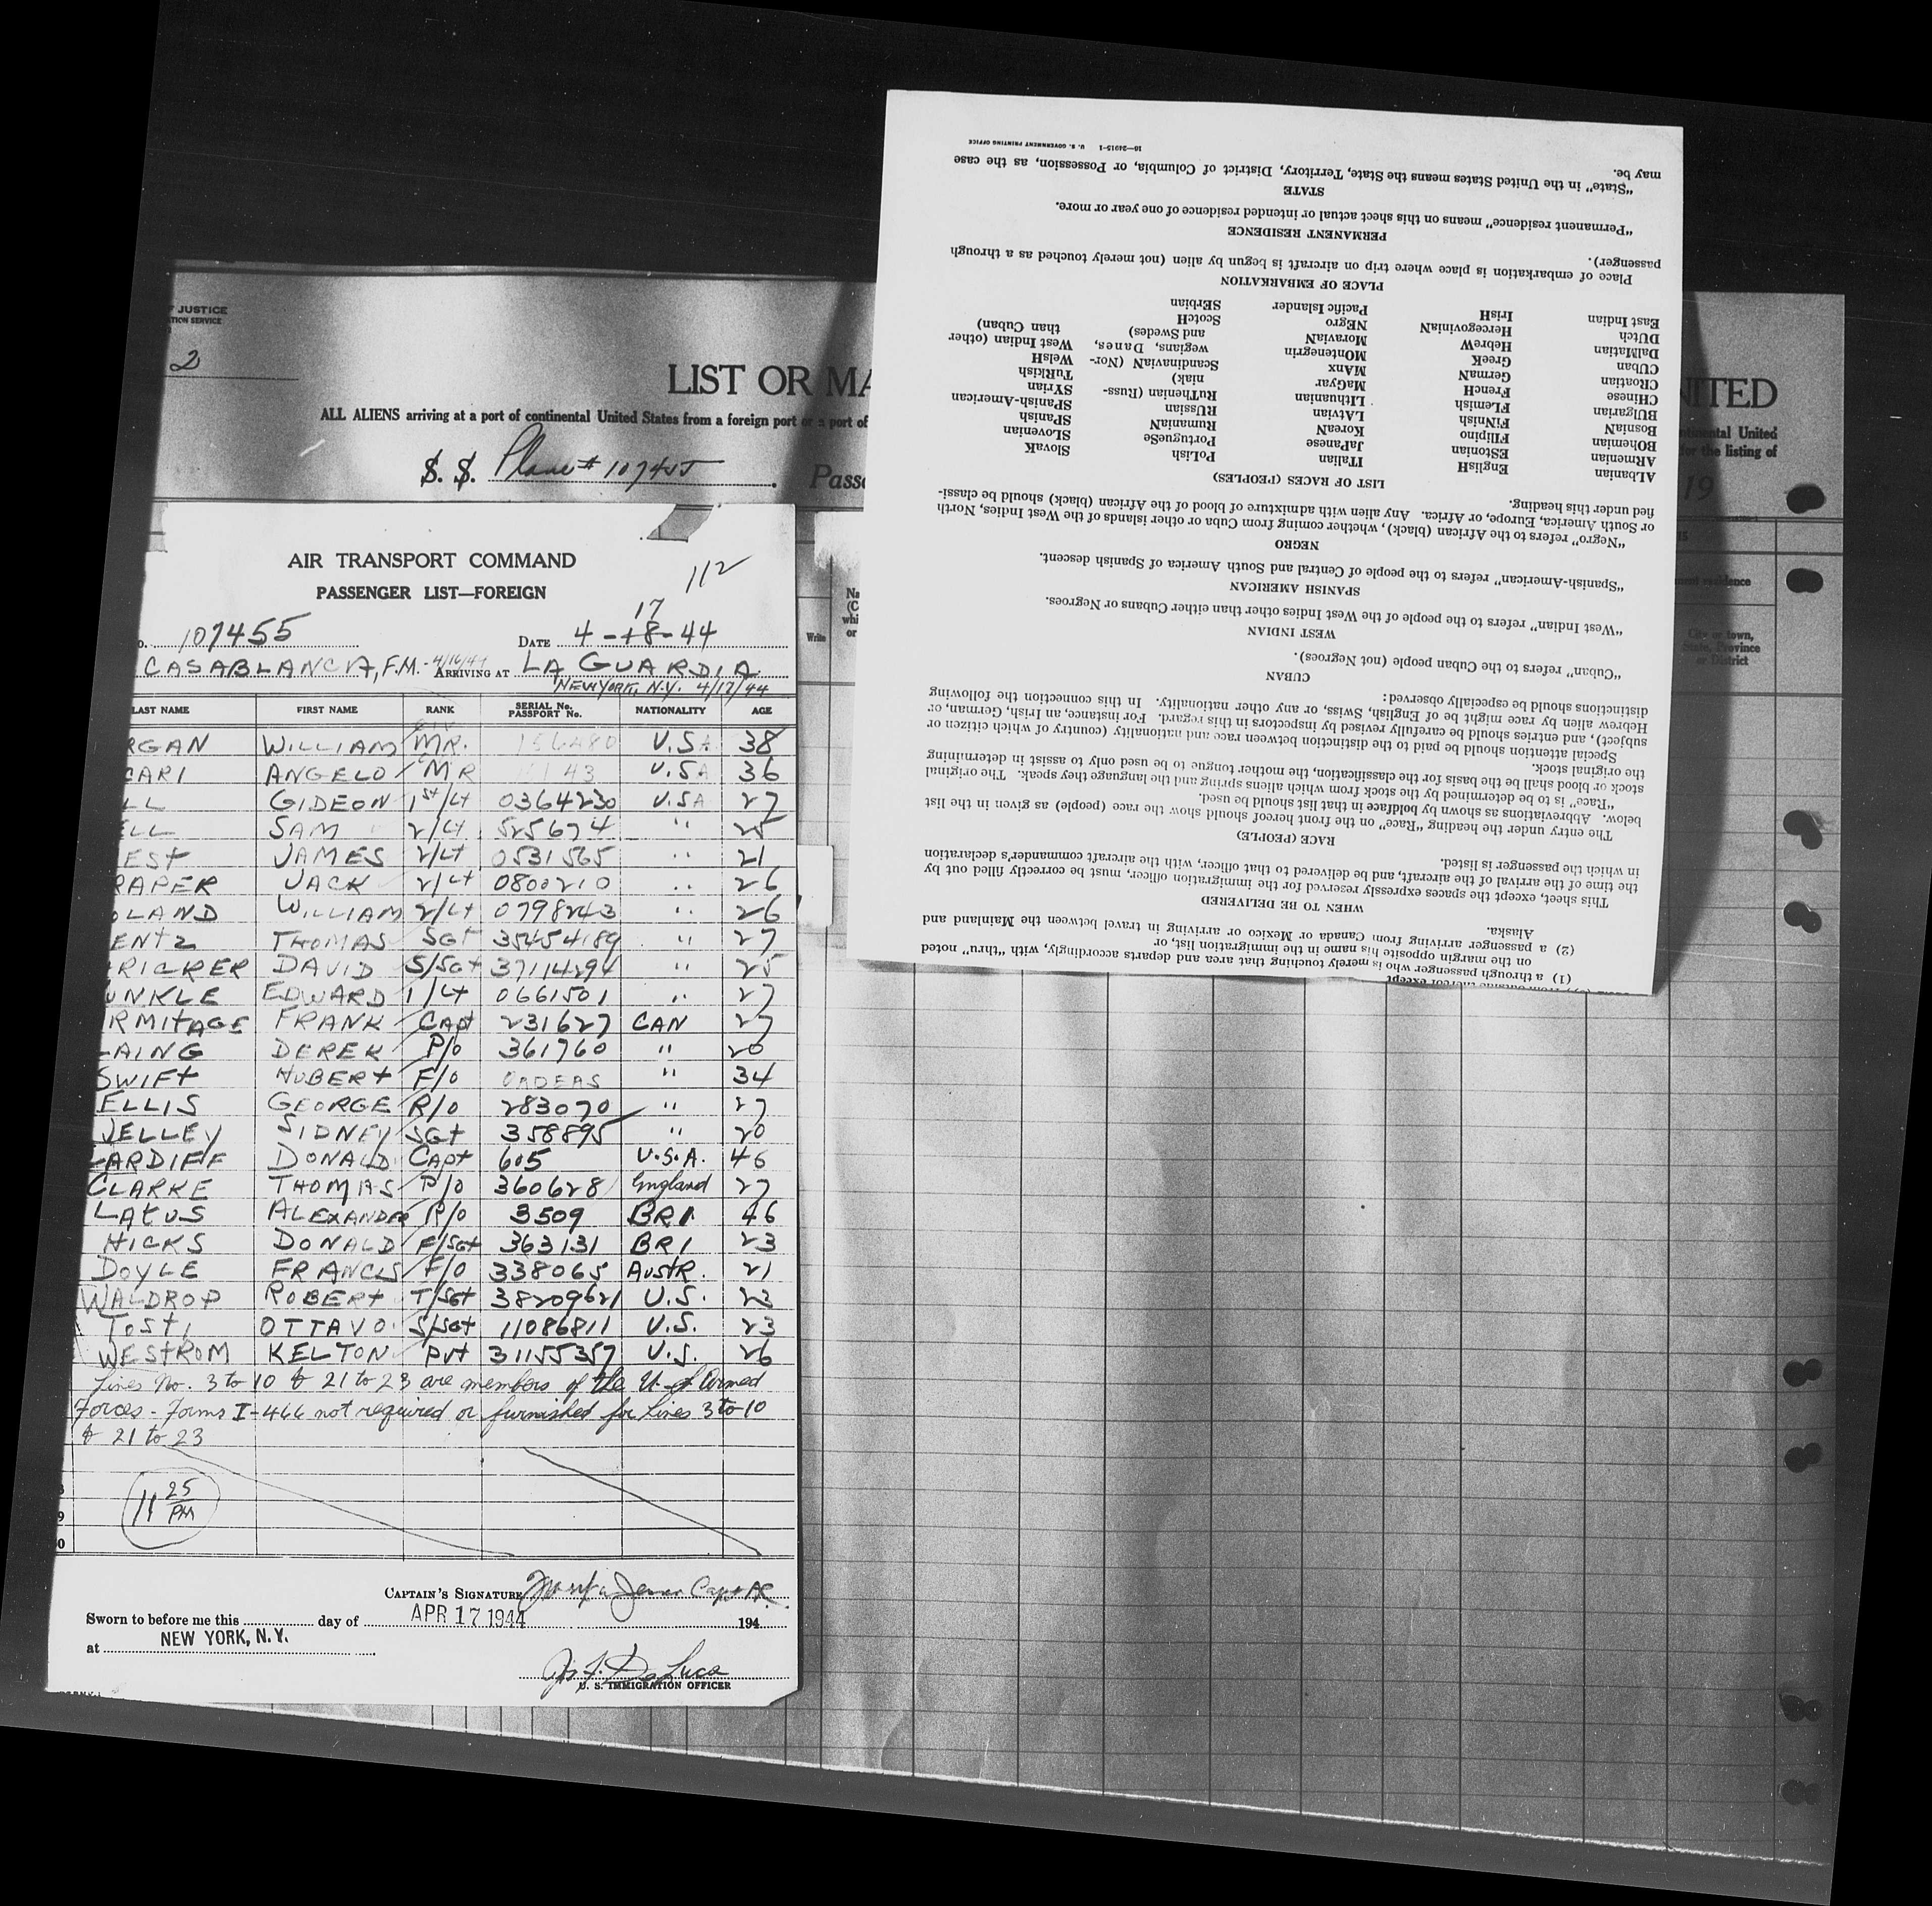 F JUSTICE
TION SERVICE
2
LIST OR MA
NITED
ALL ALIENS arriving at a port of continental United States from a foreign port or a port of
tinental United
for the listing of
S. S. Plane # 107455
Passe
19
AIR TRANSPORT COMMAND
112
PASSENGER LIST—FOREIGN
17
o. 107455 DATE 4-18-44
CASABLANCA, F.M. - 4/16/44 ARRIVING AT LA GUARDIA
NEW YORK, N.Y. 4/17/44
LAST NAME FIRST NAME RANK SERIAL No. PASSPORT No. NATIONALITY AGE
RGAN WILLIAM MR. 156480 U.S.A 38
CARI ANGELO MR 43 U.S.A 36
LL GIDEON 1st/Lt 0364230 U.S.A 27
ELL SAM 2/Lt 525674 " 25
EST JAMES 2/Lt 0531565 " 21
RAPER JACK 2/Lt 0800210 " 26
LAND WILLIAM 2/Lt 0798243 " 26
ENTZ THOMAS SGT 35454189 " 27
RICKER DAVID S/Sgt 37114294 " 25
UNKLE EDWARD 1/Lt 0661501 " 27
RMITAGE FRANK Capt 231627 CAN 27
LAING DEREK P/O 361760 " 20
SWIFT HUBERT F/O ORDERS " 34
ELLIS GEORGE R/O 283070 " 27
JELLEY SIDNEY SGT 358895 " 20
CARDIFF DONALD Capt 605 U.S.A. 46
CLARKE THOMAS P/O 360628 England 27
LATUS ALEXANDER R/O 3509 BRI 46
HICKS DONALD F/Sgt 363131 BRI 23
DOYLE FRANCIS F/O 338065 AUSTR. 21
WALDROP ROBERT T/Sgt 38209621 U.S. 23
TOSTI OTTAVO S/Sgt 11086811 U.S. 23
WESTROM KELTON Pvt 31155357 U.S. 26
Lines No. 3 to 10 & 21 to 23 are members of the U. S. Armed
Forces - Forms I-466 not required or furnished for lines 3 to 10
& 21 to 23
11 25 PM
9
0
CAPTAIN'S SIGNATURE Capt AC
Sworn to before me this day of APR 17 1944 194
at NEW YORK, N.Y.
De Luca
U. S. IMMIGRATION OFFICER
Write
City or town,
State, Province
or District
(1) a through passenger who is merely touching that area and departs accordingly, with "thru" noted
on the margin opposite his name in the immigration list, or
(2) a passenger arriving from Canada or Mexico or arriving in travel between the Mainland and
Alaska.
WHEN TO BE DELIVERED
This sheet, except the spaces expressly reserved for the immigration officer, must be correctly filled out by
the time of the arrival of the aircraft, and be delivered to that officer, with the aircraft commander's declaration
in which the passenger is listed.
RACE (PEOPLE)
The entry under the heading "Race" on the front hereof should show the race (people) as given in the list
below. Abbreviations as shown by boldface in that list should be used.
"Race" is to be determined by the stock from which aliens spring and the language they speak. The original
stock or blood shall be the basis for the classification, the mother tongue to be used only to assist in determining
the original stock.
Special attention should be paid to the distinction between race and nationality (country of which citizen or
subject), and entries should be carefully revised by inspectors in this regard. For instance, an Irish, German, or
Hebrew alien by race might be of English, Swiss, or any other nationality. In this connection the following
distinctions should be especially observed:
CUBAN
"Cuban" refers to the Cuban people (not Negroes).
WEST INDIAN
"West Indian" refers to the people of the West Indies other than either Cubans or Negroes.
SPANISH AMERICAN
"Spanish-American" refers to the people of Central and South America of Spanish descent.
NEGRO
"Negro" refers to the African (black), whether coming from Cuba or other islands of the West Indies, North
or South America, Europe, or Africa. Any alien with admixture of blood of the African (black) should be classi-
fied under this heading.
LIST OF RACES (PEOPLES)
ALbanian EngliSH ITalian PoLisH SlovaK
ARmenian EStonian JaPanese PortugueSe SLOvenian
BOhemian Filipino KoreaN RumaniaN SPanish
BosniaN FiNnish LAtvian RUssian SPanish-American
BUlgarian FLemish LIthuanian RuThenian (Russ- SYrian
CHinese FrencH MaGyar niak) TuRkish
CRoatian GermaN MAnx ScandinaviaN (Nor- WelsH
CUban GreeK MOntenegrin wegians, Danes, West Indian (other
DalMatian HebreW MoraviaN and Swedes) than Cuban)
DUtch HercegoviniaN NEgro ScotcH
East Indian IrisH Pacific Islander SErbian
PLACE OF EMBARKATION
Place of embarkation is place where trip on aircraft is begun by alien (not merely touched as a through
passenger).
PERMANENT RESIDENCE
"Permanent residence" means on this sheet actual or intended residence of one year or more.
STATE
"State" in the United States means the State, Territory, District of Columbia, or Possession, as the case
may be.
16—24915-1 U. S. GOVERNMENT PRINTING OFFICE